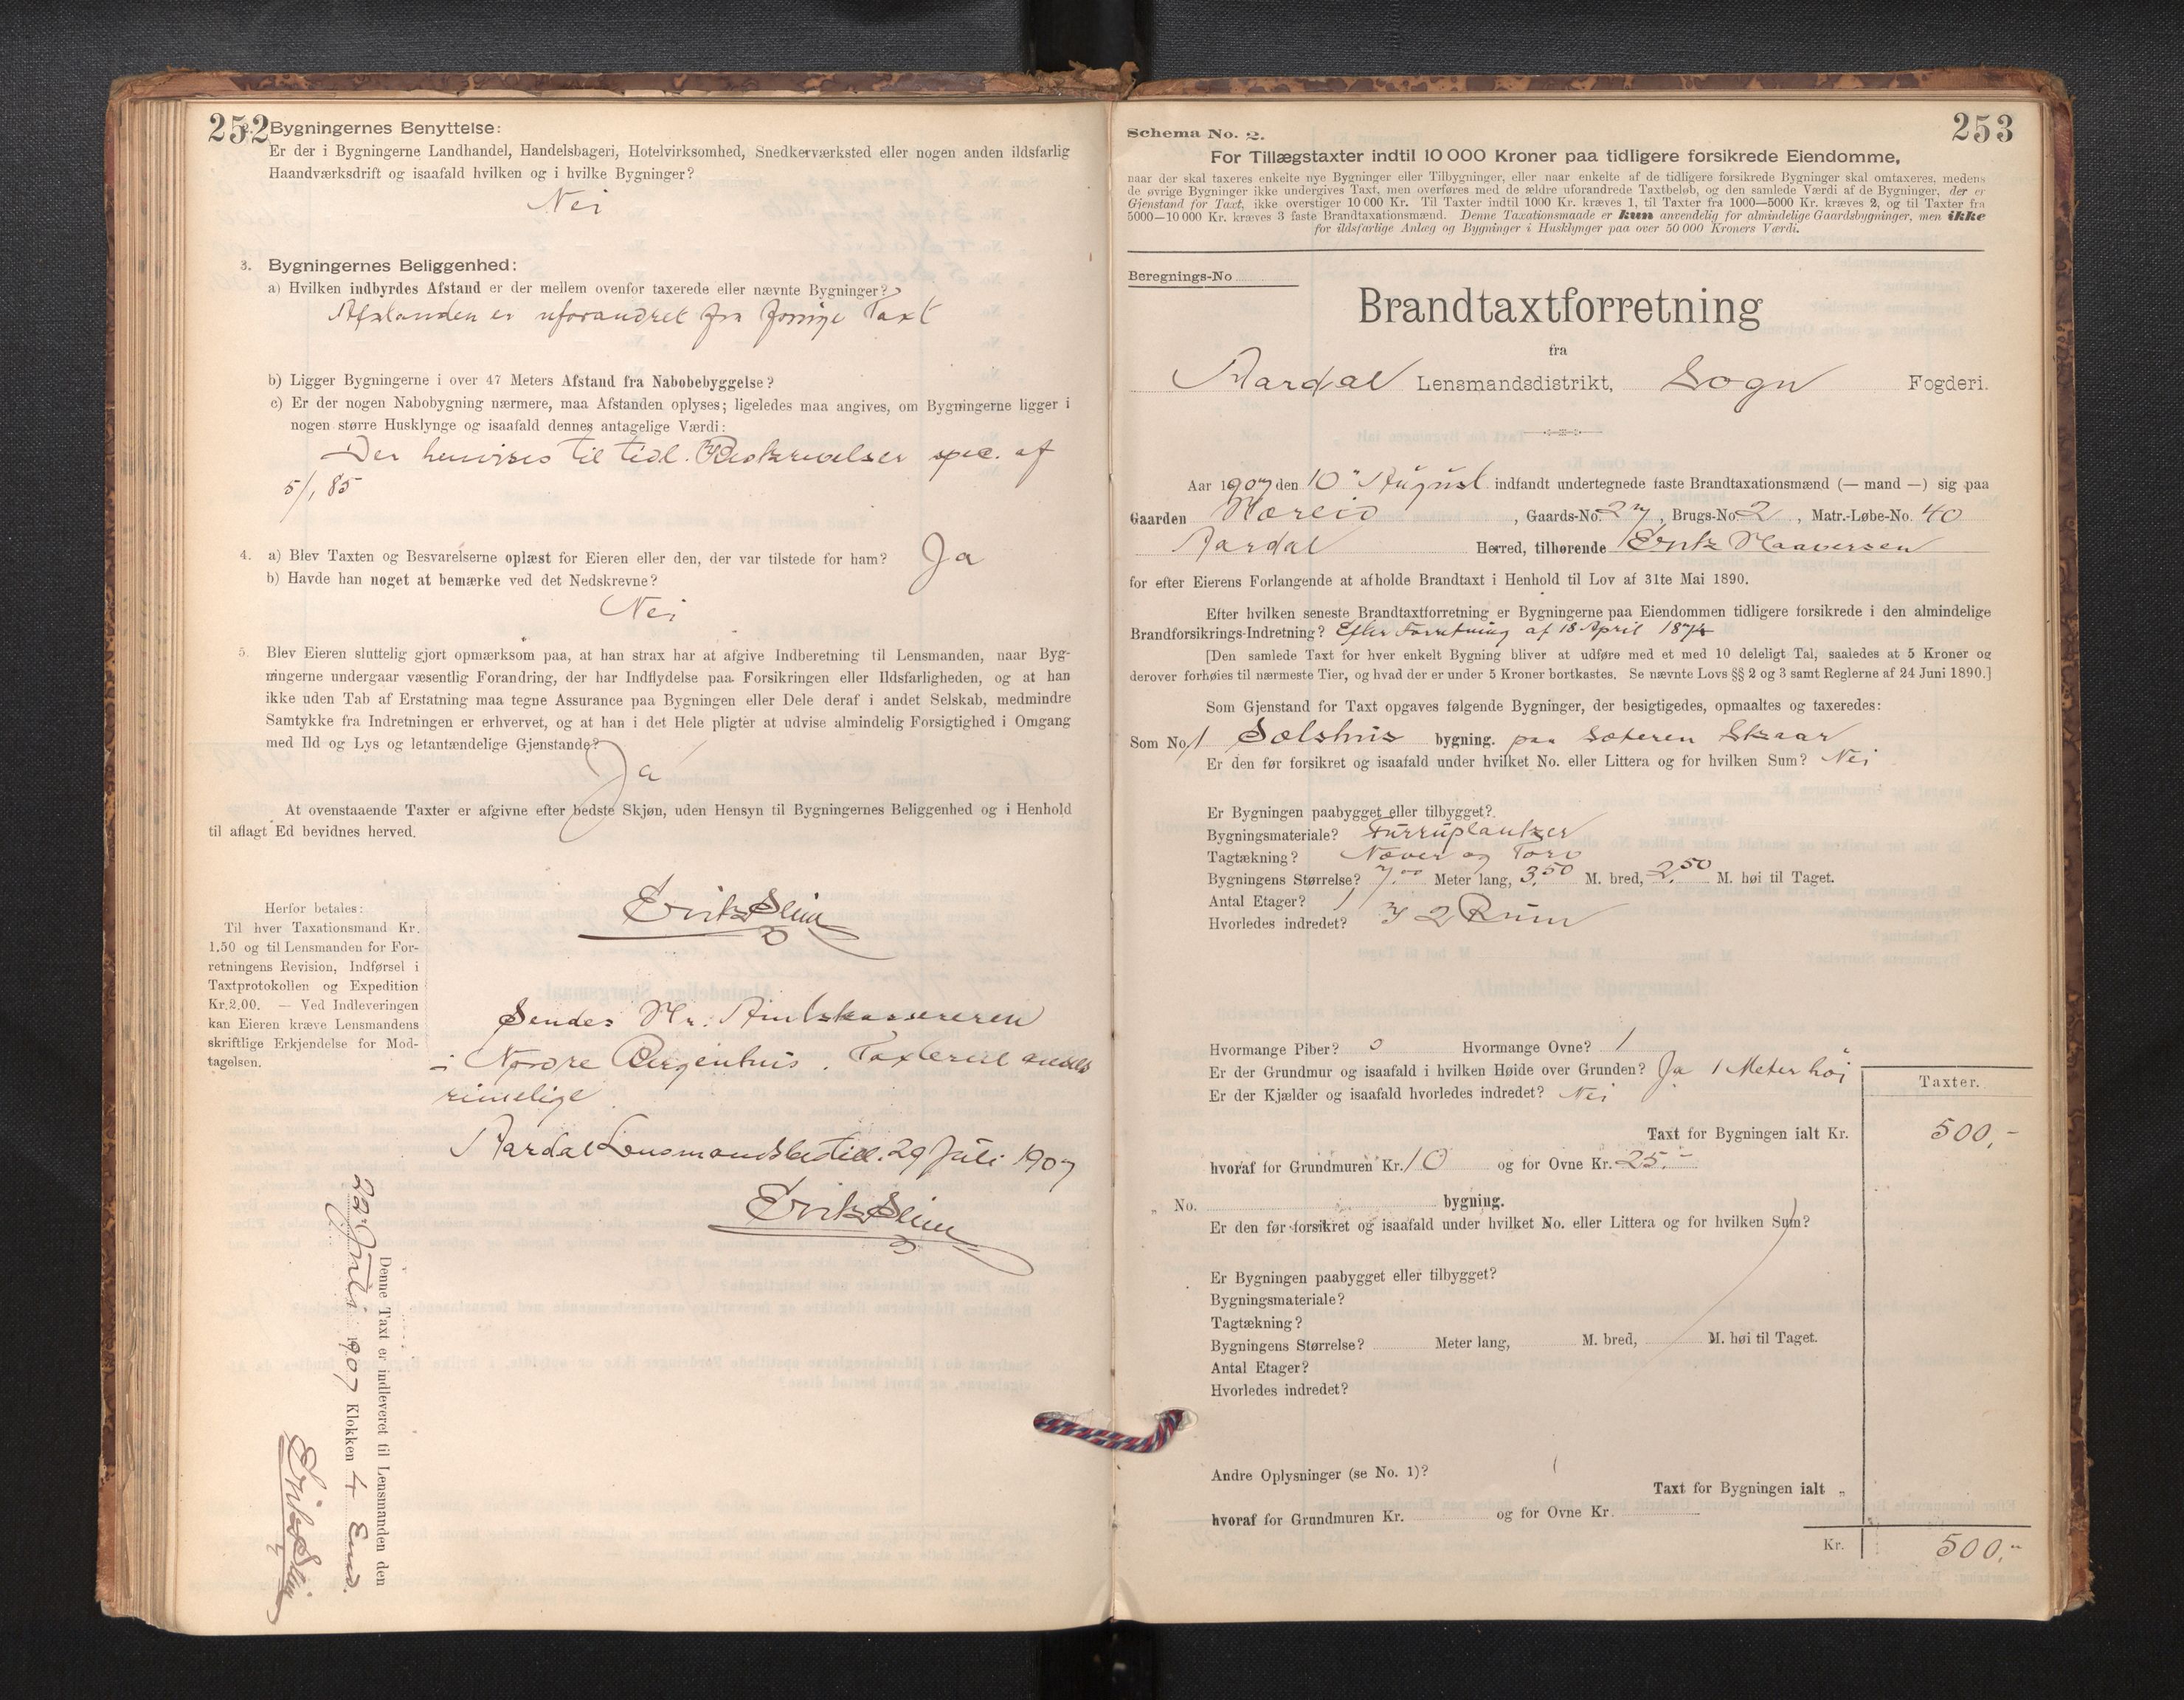 252
2. Bygningernes Benyttelse:
Er der i Bygningerne Landhandel, Handelsbageri, Hotelvirksomhed, Snedkerværksted eller nogen anden ildsfarlig
Haandværksdrift og isaafald hvilken og i hvilke Bygninger?
Nei
3. Bygningernes Beliggenhed:
a) Hvilken indbyrdes Afstand er der mellem ovenfor taxerede eller nævnte Bygninger?
Afstanden er uforandret fra forrige Taxt
b) Ligger Bygningerne i over 47 Meters Afstand fra Nabobebyggelse?
c) Er der nogen Nabobygning nærmere, maa Afstanden oplyses; ligeledes maa angives, om Bygningerne ligger i
nogen større Husklynge og isaafald dennes antagelige Værdi:
Der henvises til tidl. Beskrivelser spec. af
5/1 85
4. a) Blev Taxten og Besvarelserne oplæst for Eieren eller den, der var tilstede for ham? Ja
b) Havde han noget at bemærke ved det Nedskrevne?
Nei
5. Blev Eieren sluttelig gjort opmærksom paa, at han strax har at afgive Indberetning til Lensmanden, naar Byg-
ningerne undergaar væsentlig Forandring, der har Indflydelse paa Forsikringen eller Ildsfarligheden, og at han
ikke uden Tab af Erstatning maa tegne Assurance paa Bygningen eller Dele deraf i andet Selskab, medmindre
Samtykke fra Indretningen er erhvervet, og at han i det Hele pligter at udvise almindelig Forsigtighed i Omgang
med Ild og Lys og letantændelige Gjenstande?
Ja
At ovenstaaende Taxter er afgivne efter bedste Skjøn, uden Hensyn til Bygningernes Beliggenhed og i Henhold
til aflagt Ed bevidnes herved.
Erik Slim
Herfor betales:
Til hver Taxationsmand Kr.
1.50 og til Lensmanden for For-
retningens Revision, Indførsel i
Taxtprotokollen og Expedition
Kr. 2.00. — Ved Indleveringen
kan Eieren kræve Lensmandens
skriftlige Erkjendelse for Mod-
tagelsen.
Sendes Hr. Amtskassereren
i Nordre Bergenhus. Taxterne ansees
rimelige
Aardal Lensmandsbestill. 29 Juli 1907
Erik Slim
Denne Taxt er indleveret til Lensmanden den
29 Juli 1907 Klokken 4 Emd.
Erik Slim
253
Schema No. 2.
For Tillægstaxter indtil 10 000 Kroner paa tidligere forsikrede Eiendomme,
naar der skal taxeres enkelte nye Bygninger eller Tilbygninger, eller naar enkelte af de tidligere forsikrede Bygninger skal omtaxeres, medens
de øvrige Bygninger ikke undergives Taxt, men overføres med de ældre uforandrede Taxtbeløb, og den samlede Værdi af de Bygninger, der er
Gjenstand for Taxt, ikke overstiger 10 000 Kr. Til Taxter indtil 1000 Kr. kræves 1, til Taxter fra 1000—5000 Kr. kræves 2, og til Taxter fra
5000—10 000 Kr. kræves 3 faste Brandtaxationsmænd. Denne Taxationsmaade er kun anvendelig for almindelige Gaardsbygninger, men ikke
for ildsfarlige Anlæg og Bygninger i Husklynger paa over 50 000 Kroners Værdi.
Beregnings-No
Brandtaxtforretning
fra
Aardal Lensmandsdistrikt, Sogn Fogderi.
Aar 1907 den 10" August indfandt undertegnede faste Brandtaxationsmænd (— mand —) sig paa
Gaarden Hæreid, Gaards-No. 27, Brugs-No. 2, Matr.-Løbe-No. 40
Aardal Herred, tilhørende Erik Haaversen
for efter Eierens Forlangende at afholde Brandtaxt i Henhold til Lov af 31te Mai 1890.
Efter hvilken seneste Brandtaxtforretning er Bygningerne paa Eiendommen tidligere forsikrede i den almindelige
Brandforsikrings-Indretning? Efter Forretning af 18 April 1874
[Den samlede Taxt for hver enkelt Bygning bliver at udføre med et med 10 deleligt Tal, saaledes at 5 Kroner og
derover forhøies til nærmeste Tier, og hvad der er under 5 Kroner bortkastes. Se nævnte Lovs §§ 2 og 3 samt Reglerne af 24 Juni 1890.]
Som Gjenstand for Taxt opgaves følgende Bygninger, der besigtigedes, opmaaltes og taxeredes:
Som No. 1 Selshus bygning. paa Sæteren Skaar
Er den før forsikret og isaafald under hvilket No. eller Littera og for hvilken Sum? Nei
Er Bygningen paabygget eller tilbygget?
Bygningsmateriale? Furruplanker
Tagtækning? Næver og Torv
Bygningens Størrelse? 7.00 Meter lang, 3.50 M. bred, 2.50 M. høi til Taget.
Antal Etager? 1
Hvorledes indredet? Til 2 Rum
Hvormange Piber? 0 Hvormange Ovne? 1
Er der Grundmur og isaafald i hvilken Høide over Grunden? Ja 1 Meter høi
Er der Kjælder og isaafald hvorledes indredet? Nei
Taxter.
Taxt for Bygningen ialt Kr. 500,-
hvoraf for Grundmuren Kr. 10 og for Ovne Kr. 25.-
„ No. bygning.
Er den før forsikret og isaafald under hvilket No. eller Littera og for hvilken Sum?
Er Bygningen paabygget eller tilbygget?
Bygningsmateriale?
Tagtækning?
Bygningens Størrelse? Meter lang, M. bred, M. høi til Taget.
Antal Etager?
Hvorledes indredet?
Andre Oplysninger (se No. 1)?
Taxt for Bygningen ialt „
hvoraf for Grundmuren Kr. og for Ovne Kr.
Kr. 500,-